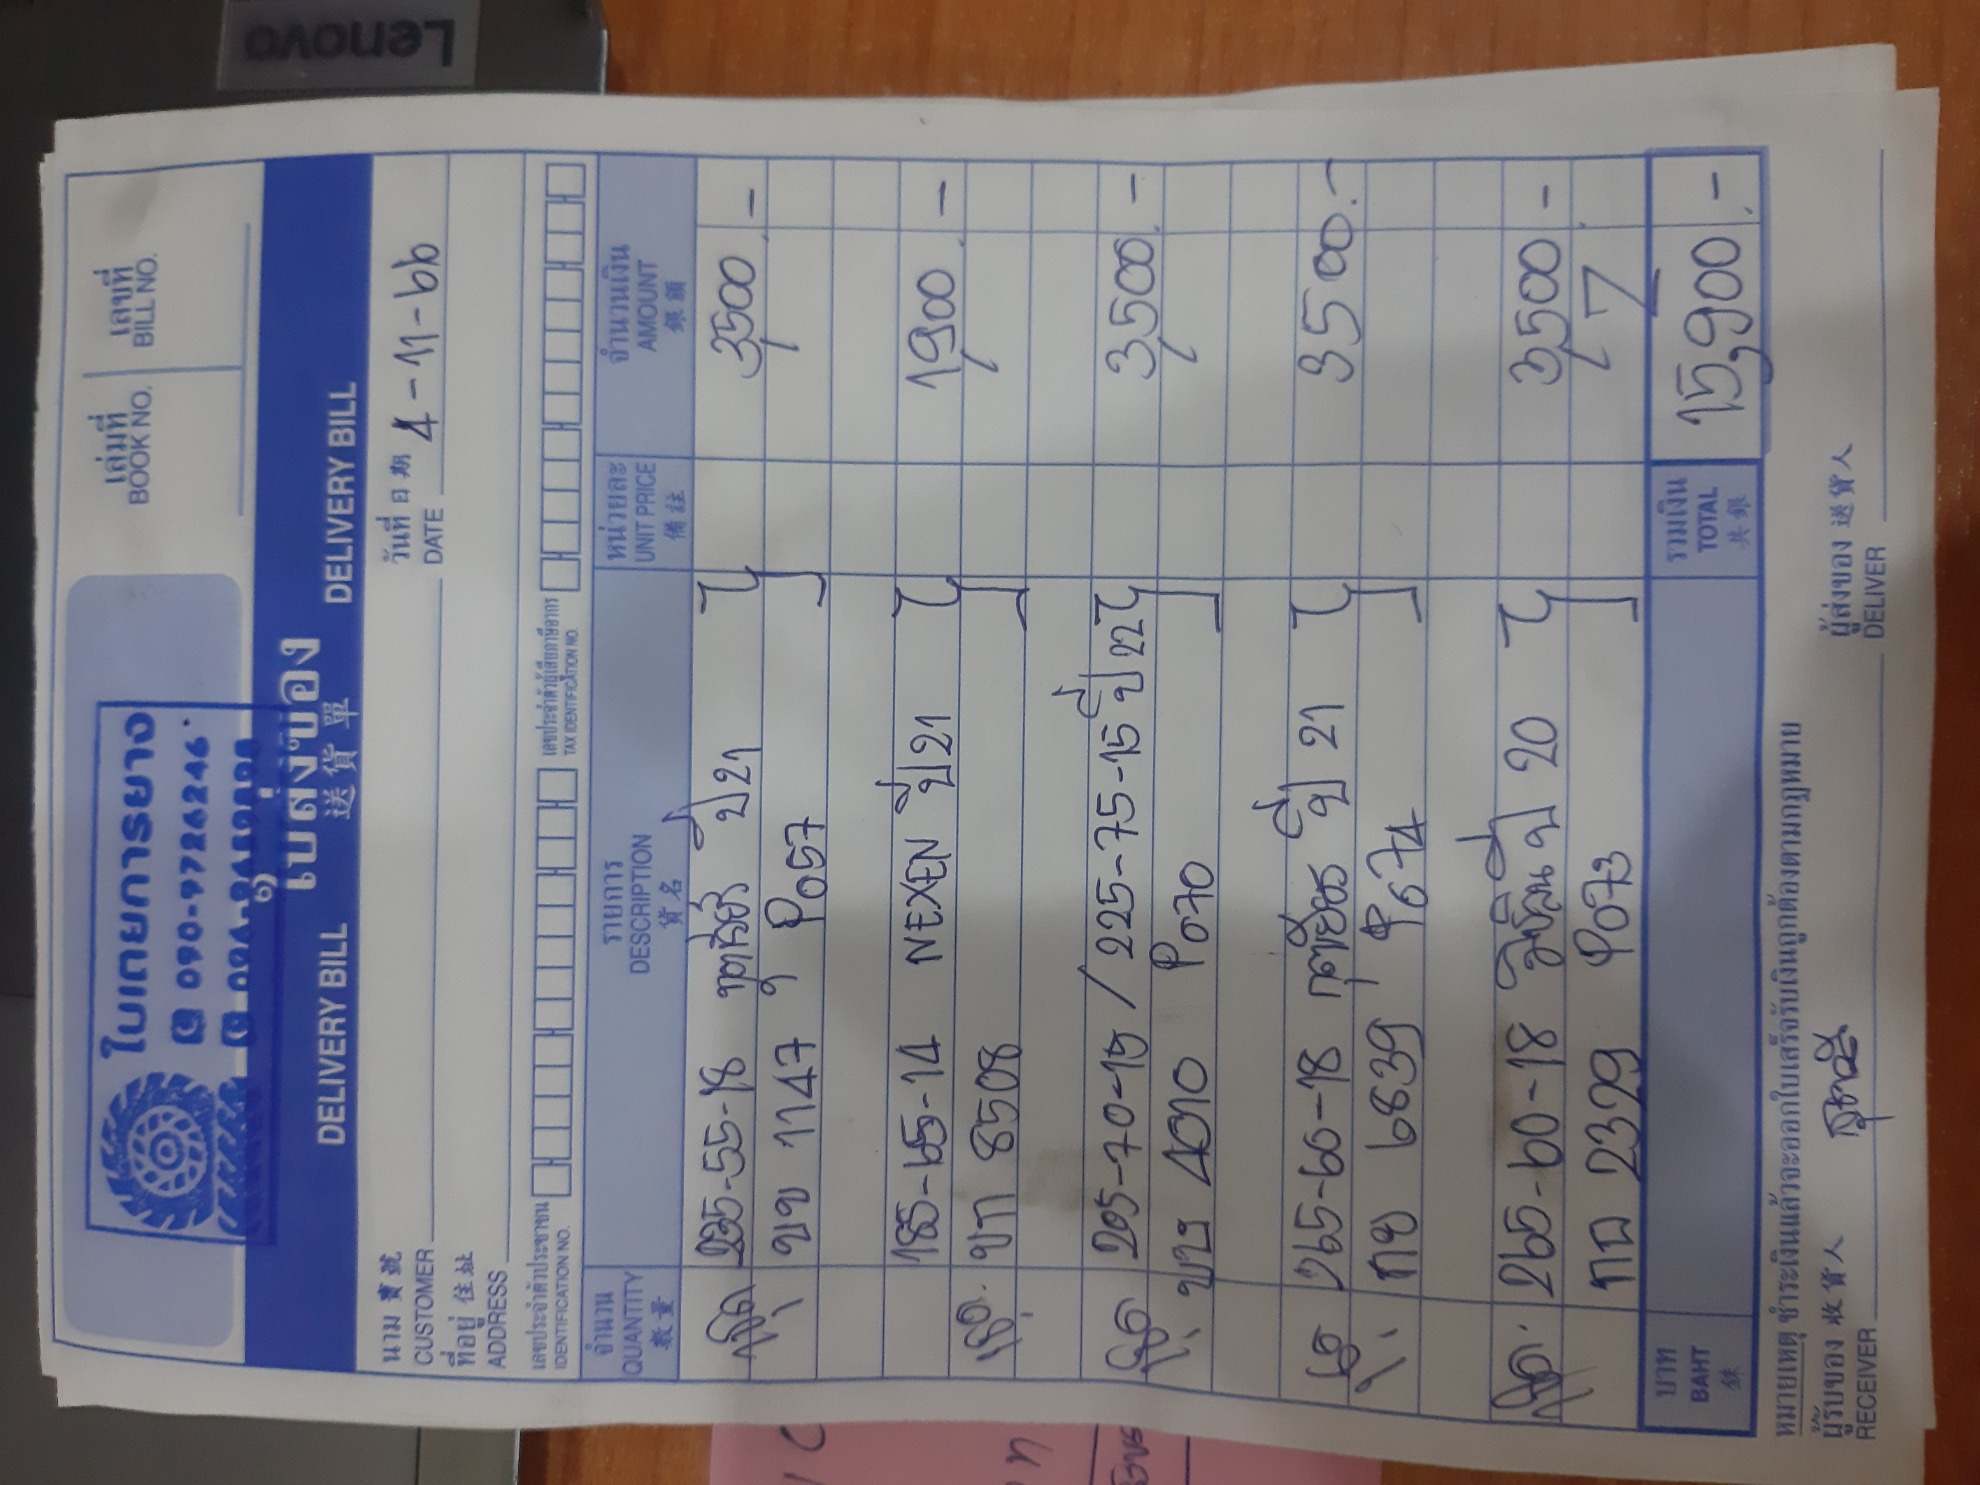 Lenovo
ใบเถยการยาง
090-9726246
เล่มที่
BOOK NO.
เลขที่
BILL NO.
ใบส่งของ
DELIVERY BILL 送貨單 DELIVERY BILL
นาม 寶號
CUSTOMER
วันที่ 日期
DATE 4-11-66
ที่อยู่ 住址
ADDRESS
เลขประจำตัวประชาชน
IDENTIFICATION NO.
เลขประจำตัวผู้เสียภาษีอากร
TAX IDENTIFICATION NO.
จำนวน
QUANTITY
數量
รายการ
DESCRIPTION
貨名
หน่วยละ
UNIT PRICE
備註
จำนวนเงิน
AMOUNT
銀額
235-55-18 ปี 21 3,500 -
ขข 1147 P057
185-65-14 NEXEN ปี 21 1,900 -
ขก 8508
205-70-15 / 225-75-15 ปี 22 3,500 -
4010 P070
265-60-18 ปี 21 3500 .-
กย 6839 P074
265-60-18 ปี 20 3,500 -
กฉ 2329 P073
บาท
BAHT
銖
รวมเงิน
TOTAL
共銀
15,900 .-
หมายเหตุ ชำระเงินแล้วจะออกใบเสร็จรับเงินถูกต้องตามกฎหมาย
ผู้รับของ 收貨人
RECEIVER
ผู้ส่งของ 送貨人
DELIVER